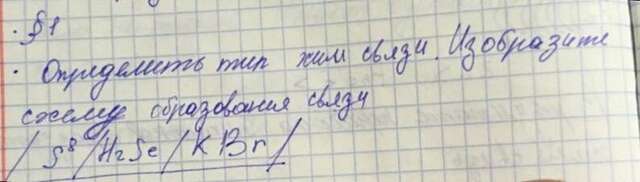 · §1
· Определить тип хим связи. Изобразите
схему образования связи
/ S⁸ / H₂Se / KBr /